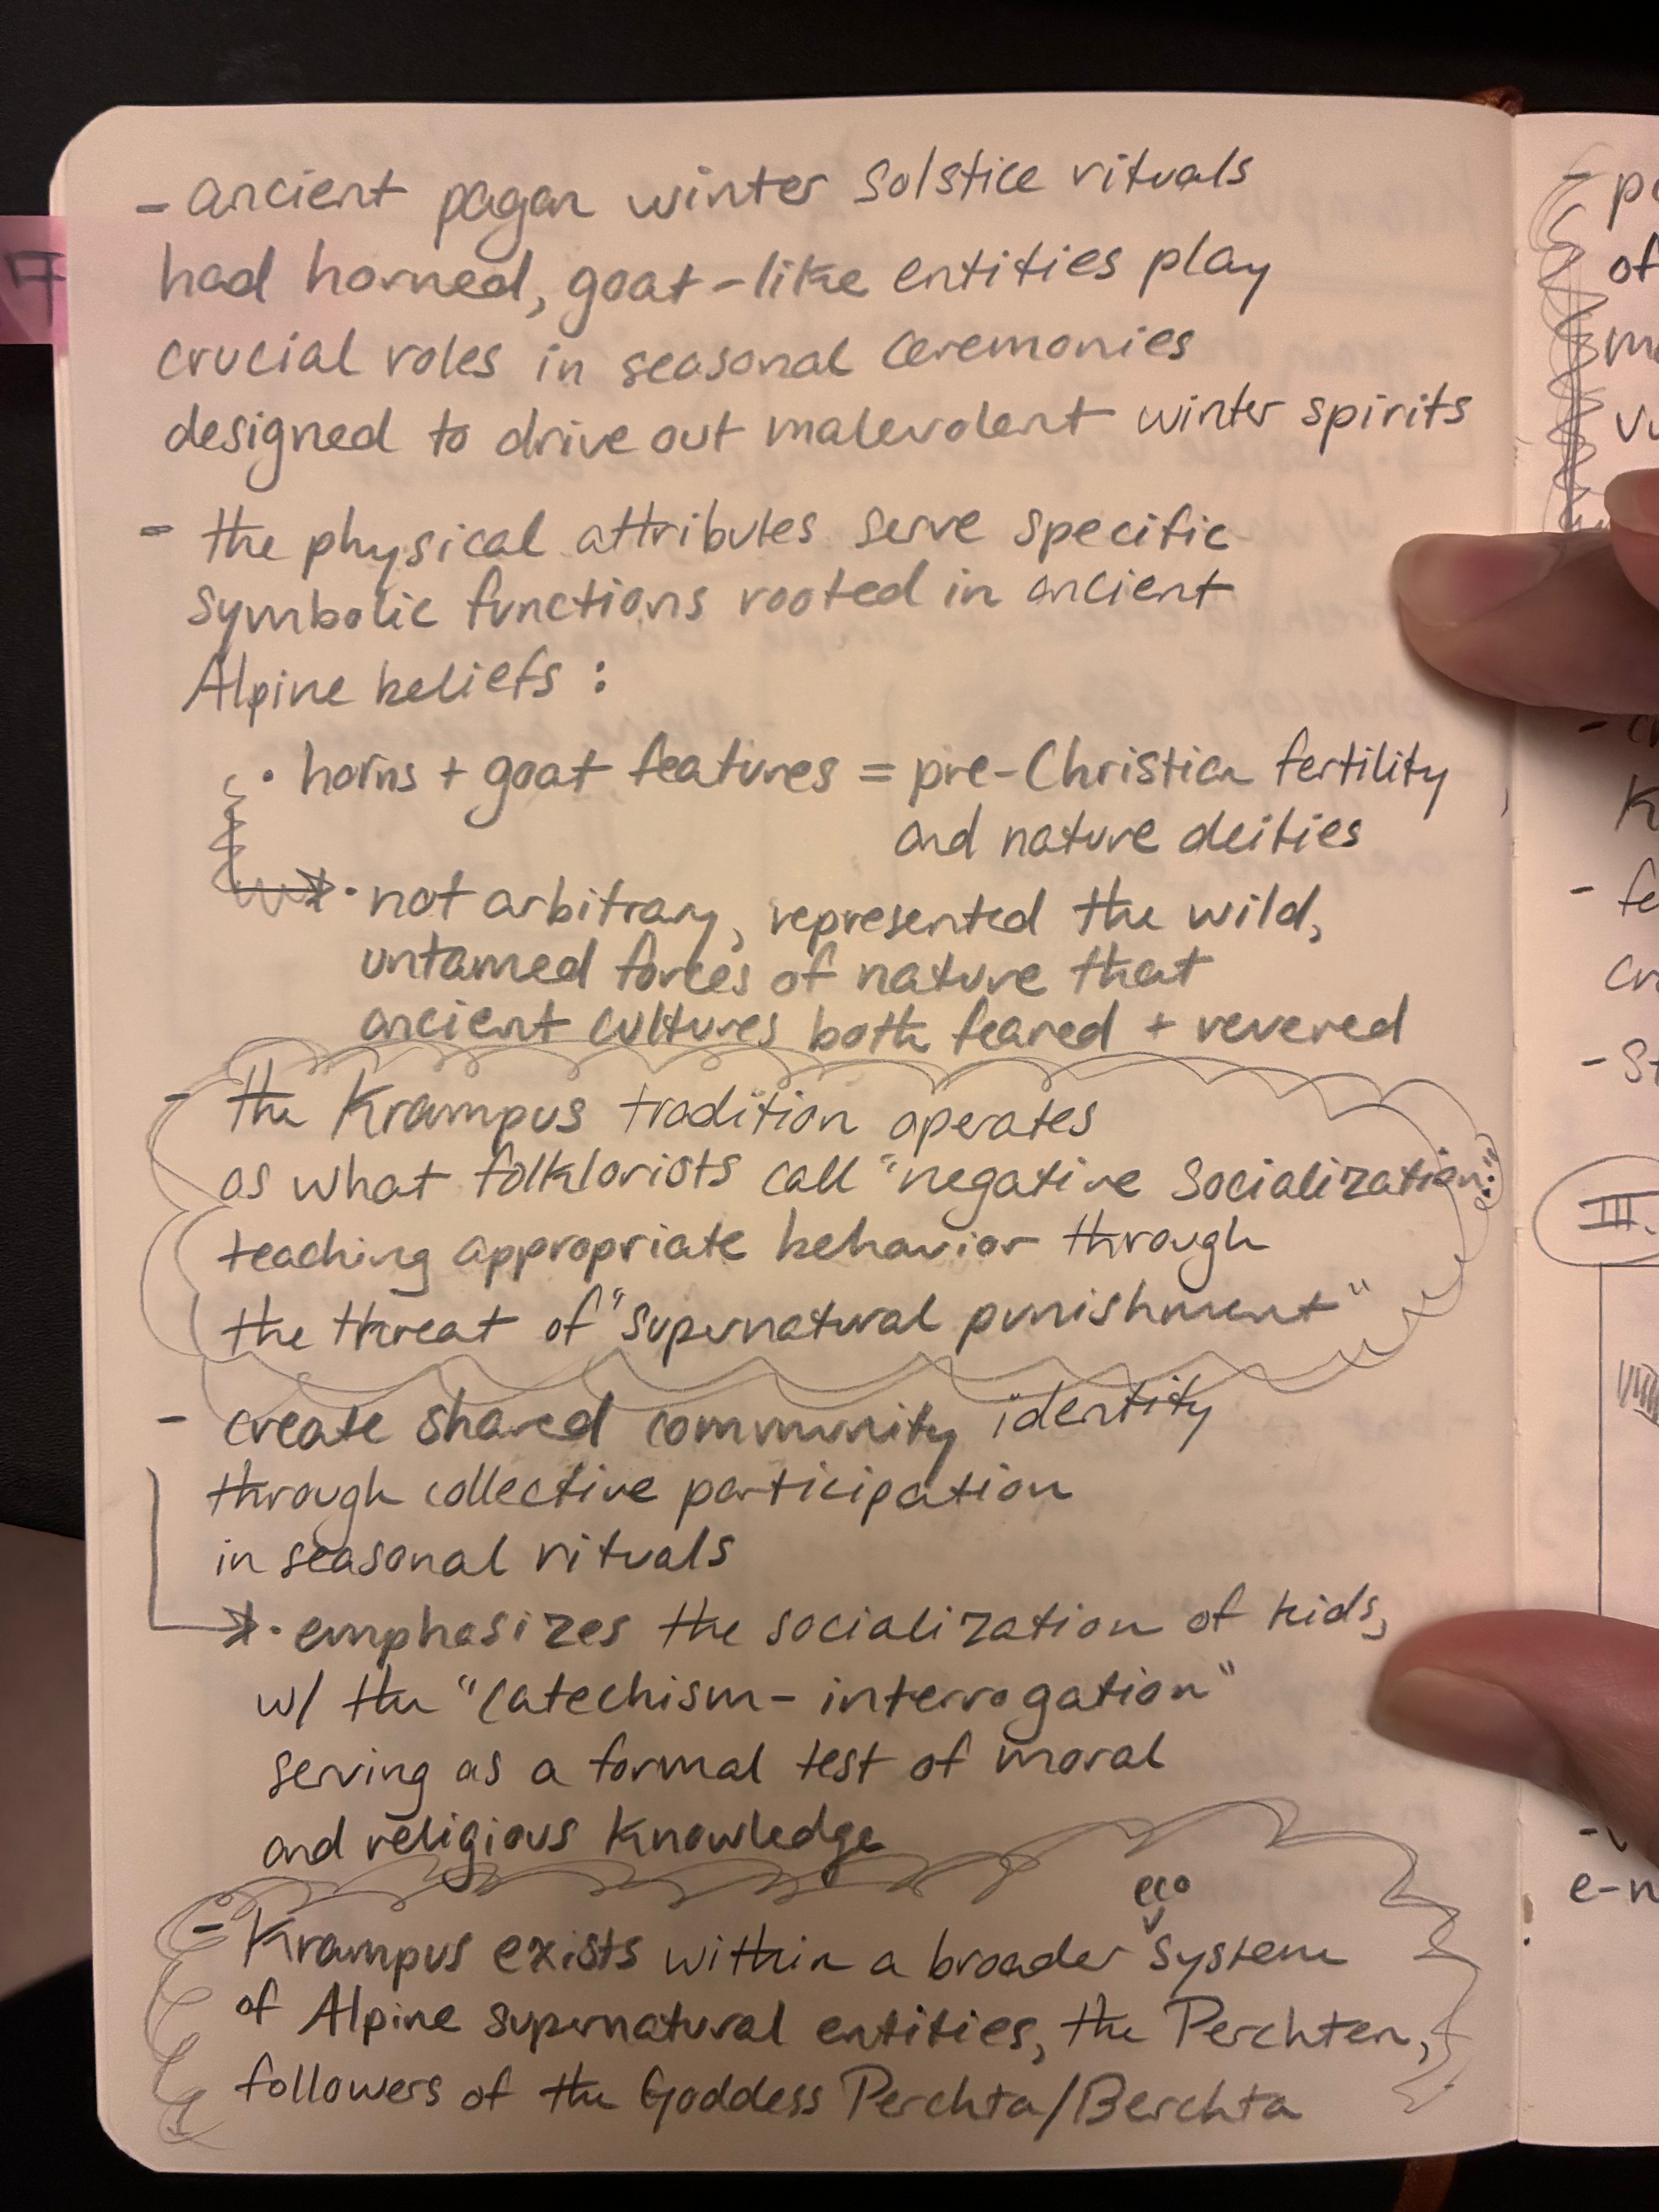 - ancient pagan winter solstice rituals
had horned, goat-like entities play
crucial roles in seasonal ceremonies
designed to drive out malevolent winter spirits
- the physical attributes serve specific
symbolic functions rooted in ancient
Alpine beliefs :
• horns + goat features = pre-Christian fertility
and nature deities
• not arbitrary, represented the wild,
untamed forces of nature that
ancient cultures both feared + revered
- the Krampus tradition operates
as what folklorists call "negative socialization":
teaching appropriate behavior through
the threat of "supernatural punishment"
- create shared community identity
through collective participation
in seasonal rituals
• emphasizes the socialization of kids,
w/ the "catechism-interrogation"
serving as a formal test of moral
and religious knowledge
eco
- Krampus exists within a broader system
of Alpine supernatural entities, the Perchten,
followers of the Goddess Perchta/Berchta
7
of
III.